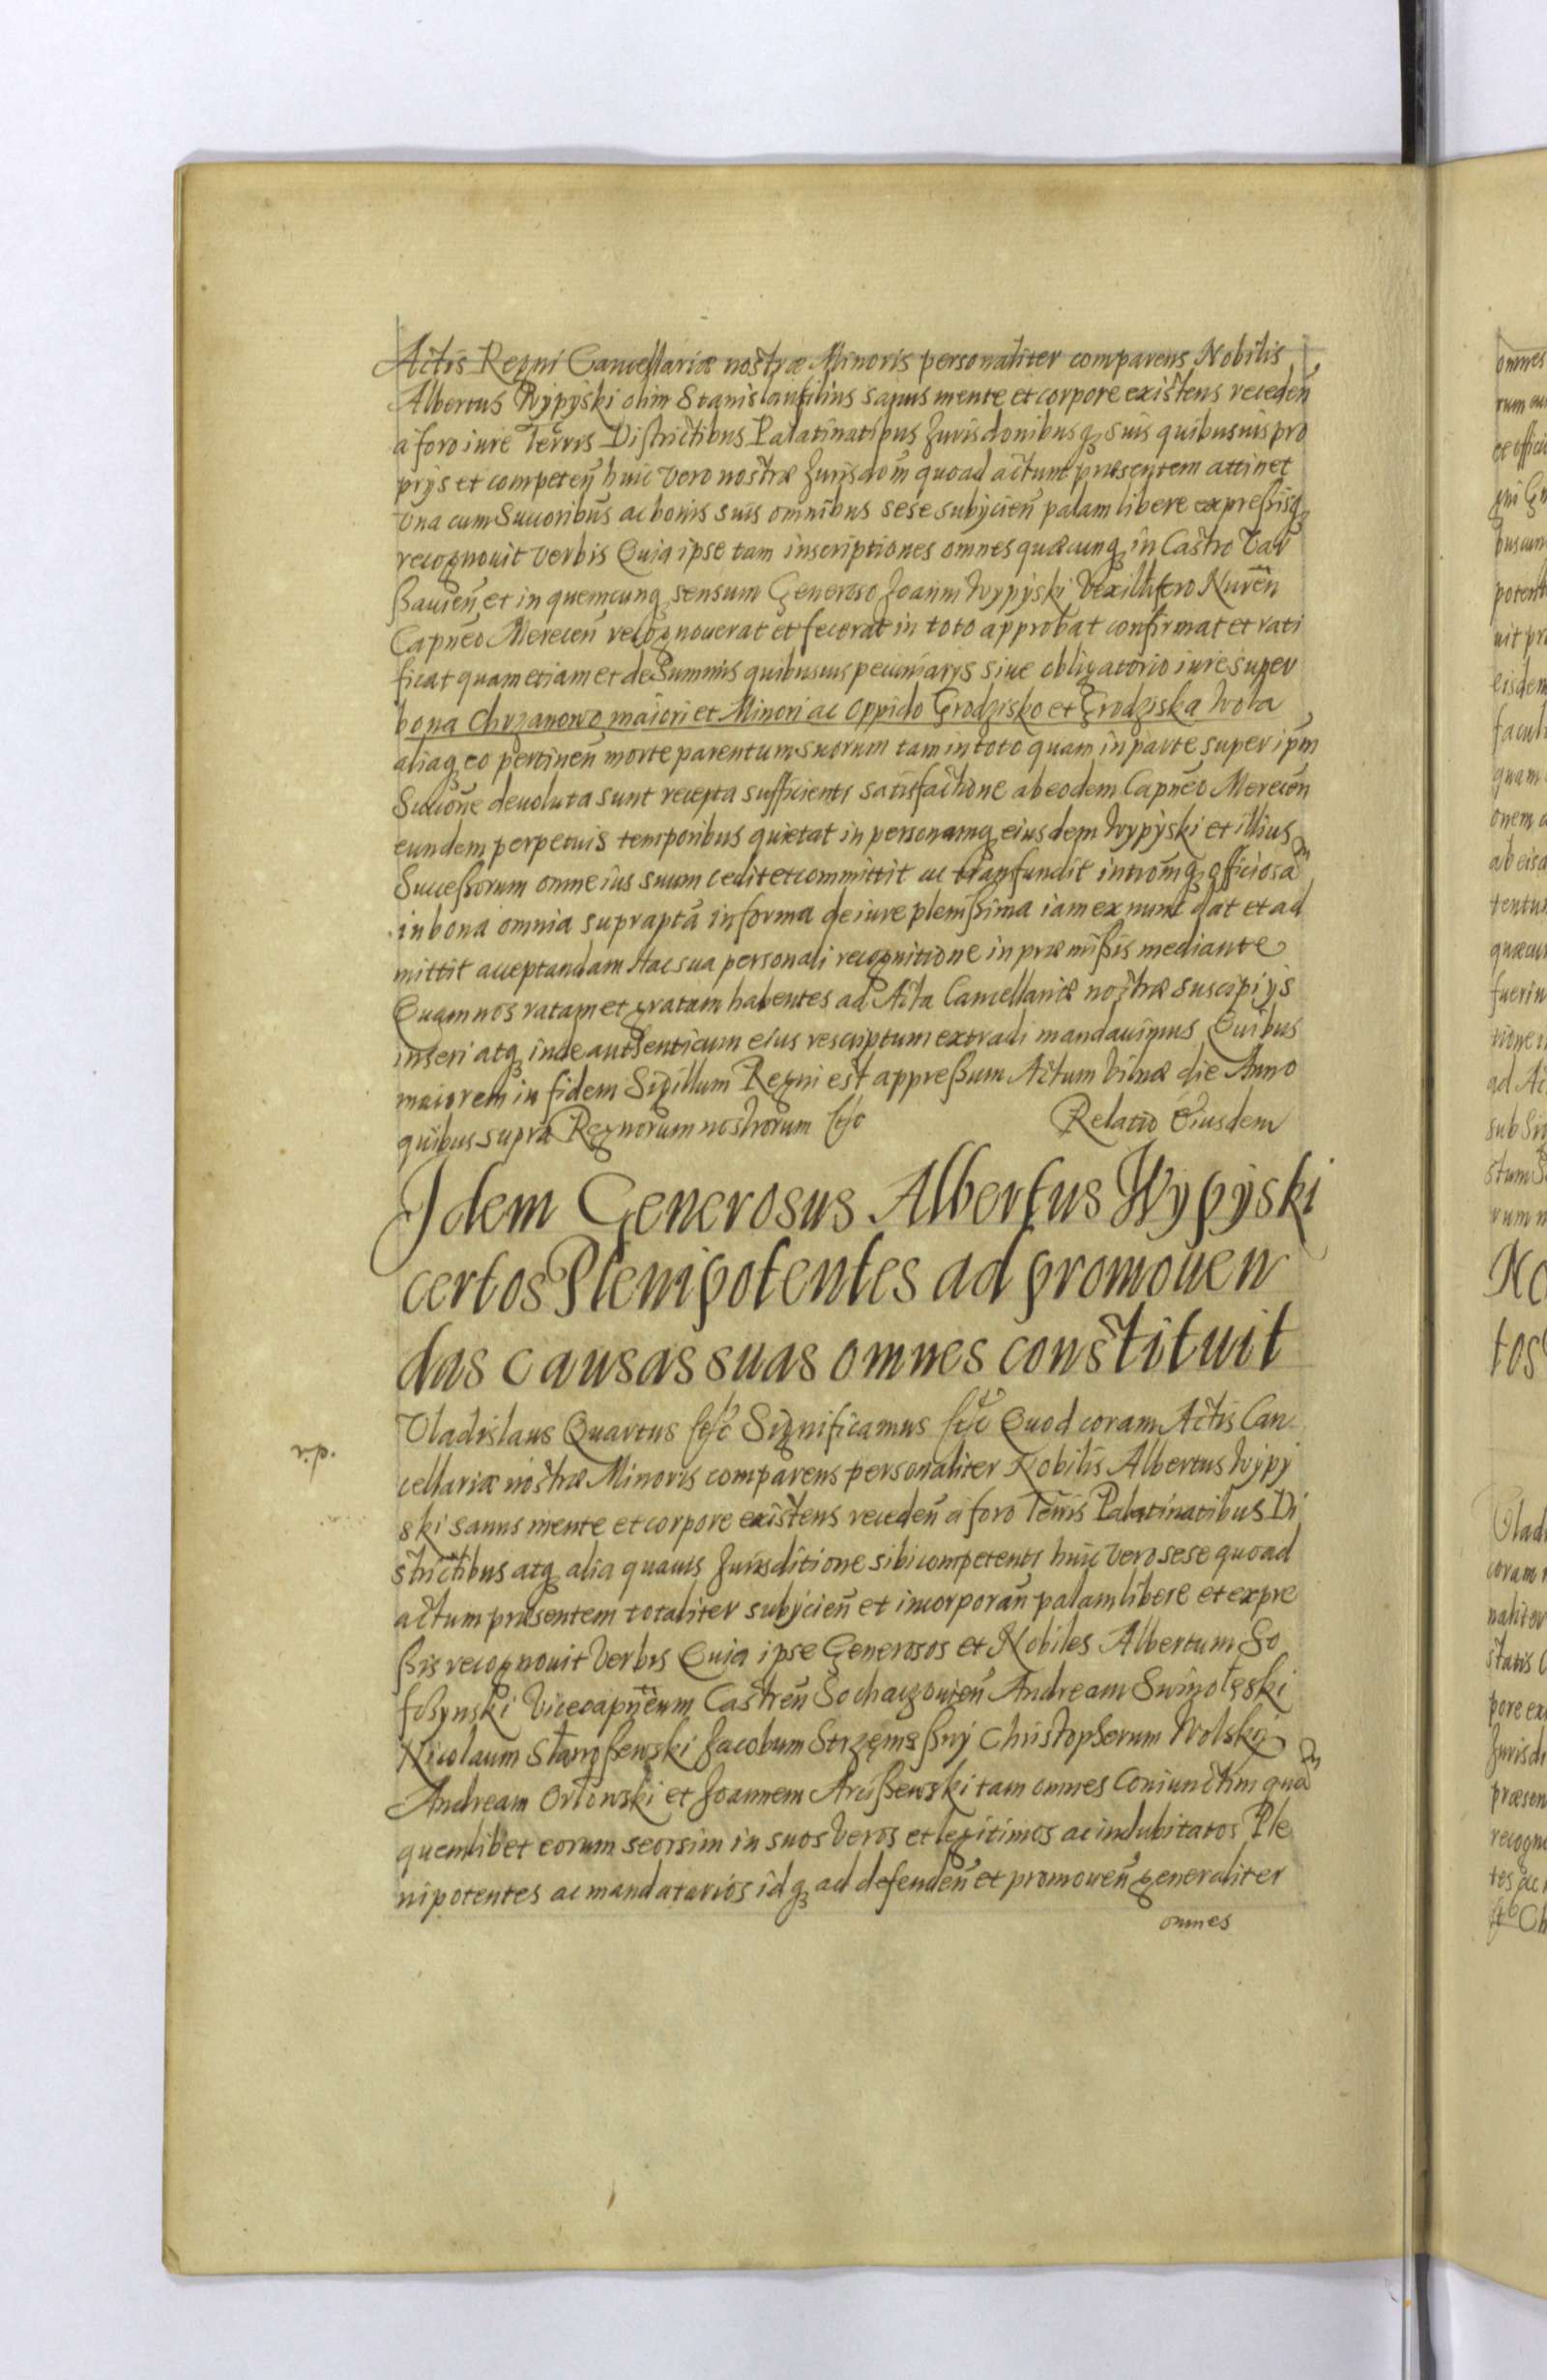 Actis Regni Cancellariæ nostræ Minoris personaliter comparens Nobilis
Albertus Wypyski olim Stanislai filius sanus mente et corpore existens receden̄
a foro iure Terris Districtibus Palatinatibus Jurisdonibusq suis quibusuis pro
prys et competen̄ huic vero nostræ Jurisdom̄ quoad actum præsentem attinet
Vna cum Succoribus ac bonis suis omnibus sese subycien̄ palam libere expreßisq
recognouit verbis Quia ipse tam inscriptiones omnes quæcunq in Castro Var
ßauien̄ et in quemcunq sensum Generoso Joanni Wypyski Vexillifero Nuren̄
Capneo Merecen̄ recognouerat et fecerat in toto approbat confirmat et rati
ficat quam etiam et de Summis quibusuis pecuniarys siue obligatorio iure super
bona Chrzanowo maiori et Minori ac oppido Grodzisko et Grodziska Wola
aliaq eo pertinen̄ morte parentum suorum tam in toto quam in parte super ipm̄
Succone deuoluta sunt recepta sufficienti satisfactione ab eodem Capneo Merecen̄
eundem perpetuis temporibus quietat in personamq eiusdem Wypyski et illius
Succeßorum omne ius suum cedit et committit ac transfundit introm̄q officiosam
in bona omnia supraptā in forma de iure plenißima iam ex nunc dat et ad
mittit acceptandam Hac sua personali recognitione in præmißis mediante
Quam nos ratam et gratam habentes ad Acta Cancellariæ nostræ suscipi ijs
inseri atq inde authenticum eius rescriptum extradi mandauimus Quibus
maiorem in fidem Sigillum Regni est appreßum Actum Vilnæ die Anno
quibus supra Regnorum nostrorum etc Relatio Eiusdem
Idem Generosus Albertus Wypyski
certos Plenipotentes ad promouen
das causas suas omnes constituit
Vladislaus Quartus etc Significamus etc Quod coram Actis Can
cellariæ nostræ Minoris comparens personaliter Nobilis Albertus Wypy
ski sanus mente et corpore existens receden̄ a foro Terris Palatinatibus Di
strictibus atq alia quauis Jurisditione sibi competenti huic vero sese quoad
actum præsentem totaliter subycien̄ et incorporan̄ palam libere et expre
ßis recognouit verbis Quia ipse Generosos et Nobiles Albertum So
Vicecapneum Castren̄ Sochaczouien̄ Andream Swinolęski
Nicolaum Staroßewski Jacobum Strzęmeßny Christopherum Wolski
Andream Orłowski et Joannem Arcißewski tam omnes Coniunctim quam
quemlibet eorum seorsim in suos veros et legitimos ac indubitatos Ple
nipotentes ac mandatarios idq ad defenden̄ et promouen̄ generaliter
omnes